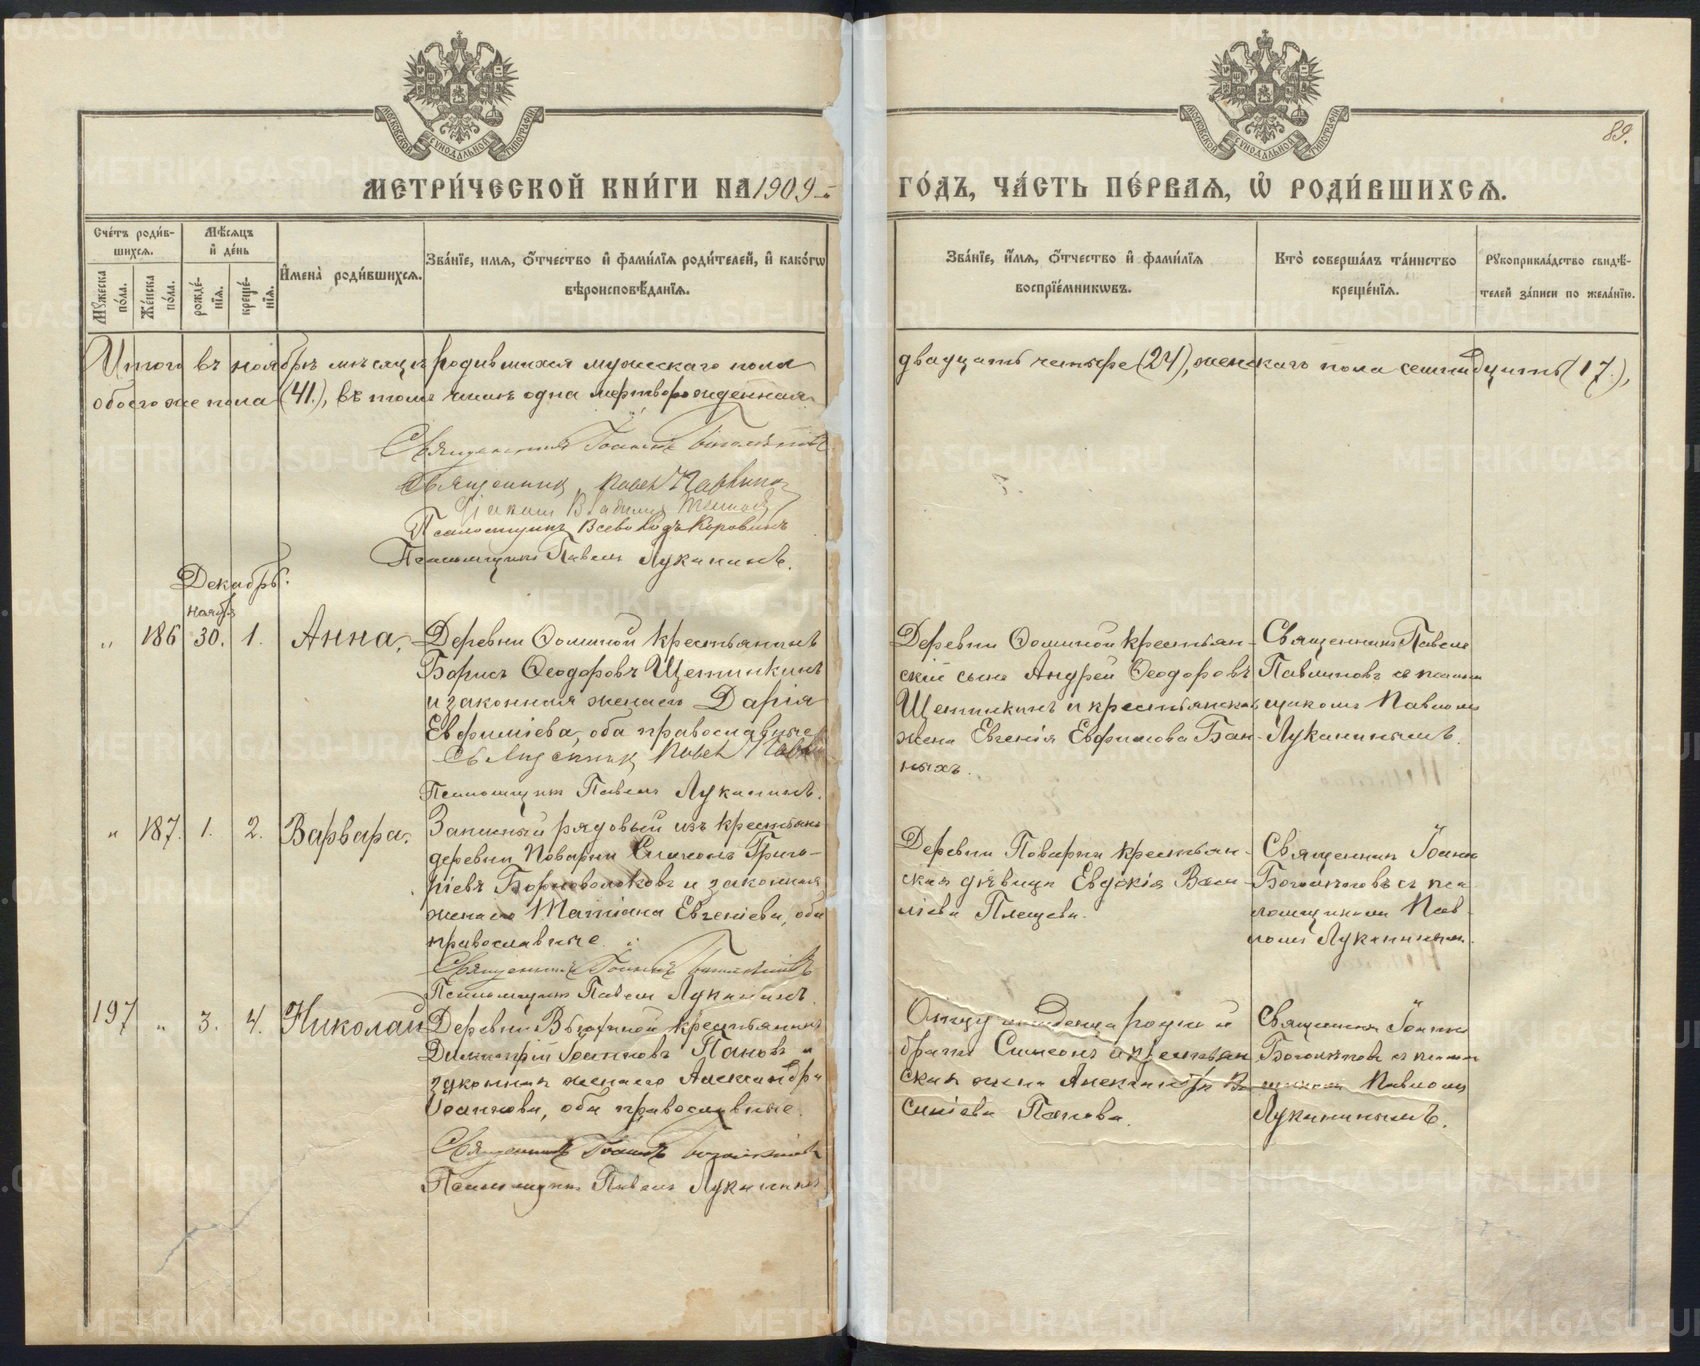 МЕТРИ́ЧЕСКОЙ КНИ́ГИ НА 1909
ГО́ДЪ, ЧА́СТЬ ПЕ́РВАЯ, Ѡ҆ РОДИ́ВШИХСЯ.
89.
Сче́тъ роди́в-
шихся.
Мѣ́сяцъ
и҆ де́нь
Мꙋ́жеска по́ла.
Же́нска по́ла.
рожде́-
нїя.
креще́-
нїя.
И҆мена̀ роди́вшихся.
Зва́нїе, имя, ѻ҆́тчество и҆ фами́лїя роди́телей, и҆ како́гѡ
вѣроисповѣ́данїя.
Зва́нїе, и҆́мя, ѻ҆́тчество и҆ фами́лїя
воспрїе́мникѡвъ.
Кто̀ соверша́лъ та́инство
креще́нїя.
Рꙋкоприкла́дство свидѣ́-
телей за́писи по жела́нїю.
Итого въ ноябрѣ мѣсяцѣ родившихся мужескаго пола
двадцать четыре (24), женскаго пола семнадцать (17.),
обоего же пола (41.), въ томъ числѣ одна мертворожденная.
Священникъ Іоаннъ
Священник Павел
Псаломщикъ Всеволодъ Коровинъ
Псаломщикъ Павелъ Луканинъ.
Декабрь.
ноябр
„ 186 30. 1. Анна.
Деревни Ѳоминой крестьянинъ
Борисъ Ѳеодоровъ Щетинкинъ
и законная жена его Дарія
Евфиміева, оба православные
Священник Павел
Псаломщикъ Павелъ Луканинъ.
Деревни Ѳоминой крестьян-
скій сынъ Андрей Ѳеодоровъ
Щетинкинъ и крестьянская
жена Евгенія Евфимова Бан-
ныхъ.
Священникъ Павелъ
Павлиновъ съ псалом
щикомъ Павломъ
Луканинымъ.
„ 187. 1. 2. Варвара.
Запасный рядовый изъ крестьянъ
деревни Поварни Симеонъ Григо-
ріевъ Борноволоковъ и законная
жена его Татіана Евгеніева, оба
православные.
Священникъ Іоаннъ
Псаломщикъ Павелъ Луканинъ.
Деревни Поварни крестьян-
ская дѣвица Евдокія Васи-
ліева Плещева.
Священникъ Іоаннъ
съ пса
ломщикомъ Пав-
ломъ Луканинымъ.
197 „ 3. 4. Николай
Деревни крестьянинъ
Димитрій Іоанновъ Пановъ и
законная жена его Александра
Іоаннова, оба православные.
Священникъ Іоаннъ
Псаломщикъ Павелъ Луканинъ
Отцу младенца родный
братъ Симеонъ и крестьян
ская жена Александра Ва
силіева Панова.
Священникъ Іоаннъ
съ псалом
щикомъ Павломъ
Луканинымъ.
METRIKI.GASO-URAL.RU